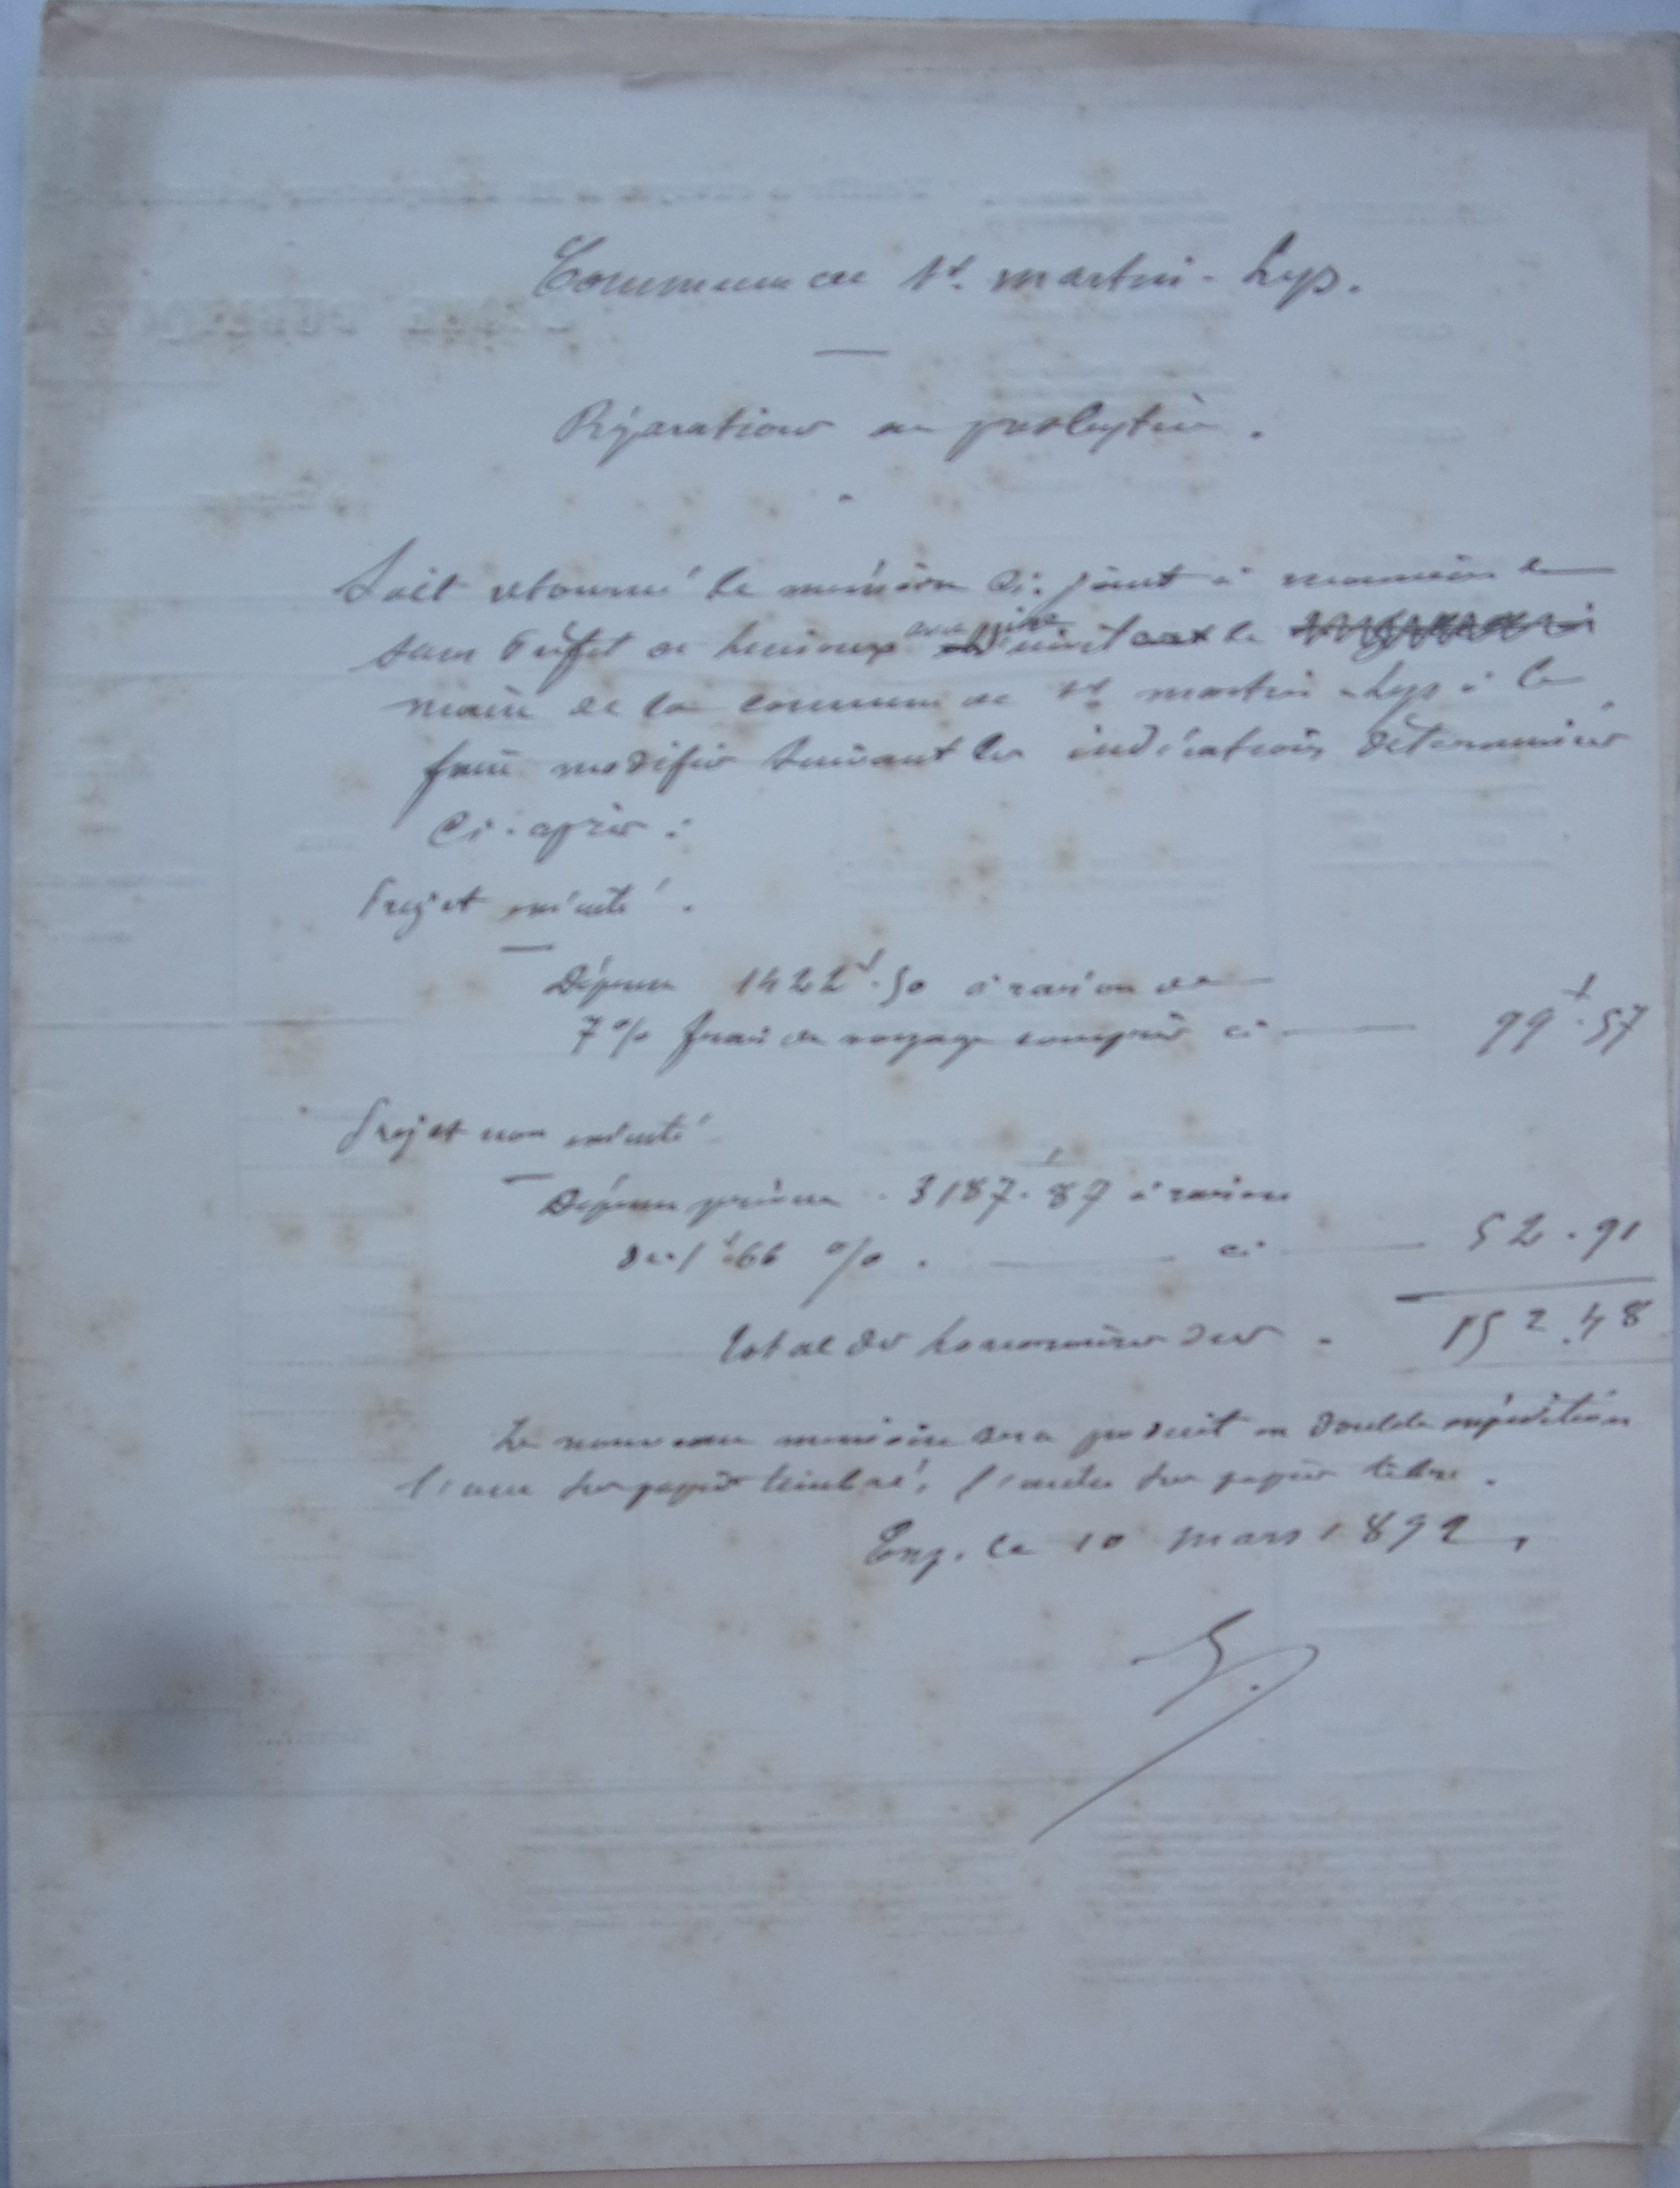 Commune de St. martin-Lys.
Réparations au presbytère.
Soit retourné le mémoire ci-joint à monsieur le
Sous Préfet de Limoux avec prière d'inviter le
maire de la commune de St martin-Lys à le
faire modifier suivant les indications déterminées
ci-après :
Projet exécuté.
Dépense 1422f.50 à raison de
7% frais de voyage compris ci 99f.57
Projet non exécuté
Dépense prévue 3187f.87 à raison
de 1f.66 %. ci 52.91
total des honoraires dus. 152.48
Le nouveau mémoire sera produit en double expédition
l'une sur papier timbré, l'autre sur papier libre.
le 10 mars 1892,